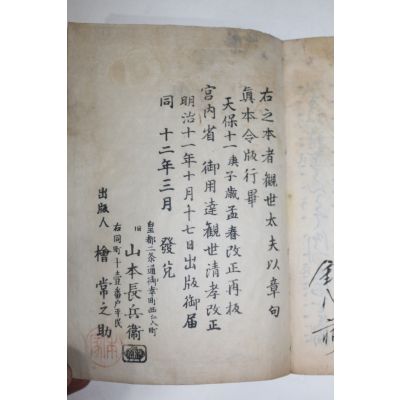 右之本者觀世太夫以章句
眞本令版行畢
天保十一庚子歳孟春改正再板
宮内省 御用達觀世清孝改正
明治十一年十月十七日出版御届
同 十二年三月 發兌
皇都二条通御幸町西江入町
旧 山本長兵衛
右同町十二番戸平民
出版人 檜 常之助